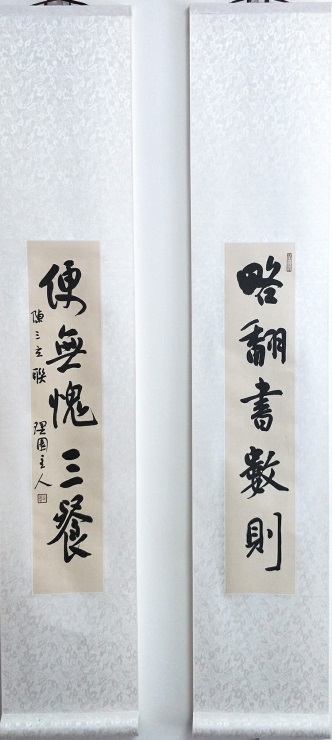 略翻書數則
便無愧三餐
陳三立聯 理園主人